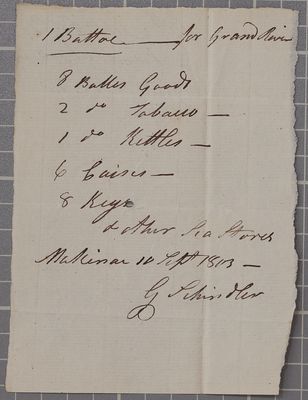 1 Battoe — for Grand River
8 Balles Goods
2 do Tobacco —
1 do Kettles —
6 Caises —
8 Kegs
& other Sea Stores
Makinac 10 Sept 1803 —
G Schindler